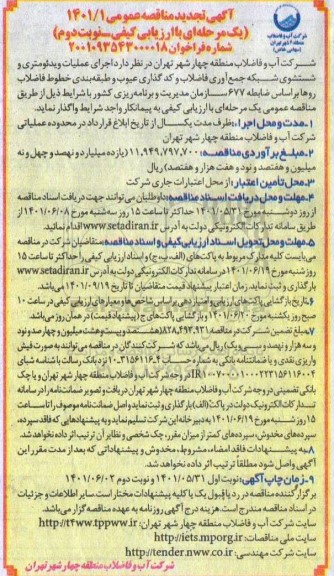 شرکت آب و فاضلاب
منطقه ۴ شهر تهران
(سهامی خاص)
آگهی تجدید مناقصه عمومی ۱۴۰۱/۱
(یک مرحله‌ای با ارزیابی کیفی_نوبت دوم)
شماره فراخوان ۲۰۰۱۰۹۳۵۴۳۰۰۰۰۱۸
شرکت آب و فاضلاب منطقه چهار شهر تهران در نظر دارد اجرای عملیات ویدئومتری و
شستشوی شبکه جمع‌آوری فاضلاب و کدگذاری عیوب و طبقه‌بندی خطوط فاضلاب
روها براساس ضابطه ۶۷۷ سازمان مدیریت و برنامه‌ریزی کشور با شرایط ذیل از طریق
مناقصه عمومی یک مرحله‌ای با ارزیابی کیفی به پیمانکار واجد شرایط واگذار نماید.
۱_مدت و محل اجرا: ظرف مدت یکسال از تاریخ ابلاغ قرارداد در محدوده عملیاتی
شرکت آب و فاضلاب منطقه چهار شهر تهران
۲_مبلغ برآوردی مناقصه: ۱۱,۹۴۹,۷۹۷,۷۰۰ (یازده میلیارد و نهصد و چهل و نه
میلیون و هفتصد و نود و هفت هزار و هفتصد) ریال
۳_محل تأمین اعتبار: از محل اعتبارات جاری شرکت
۴_مهلت و محل دریافت اسناد مناقصه: داوطلبان می‌توانند جهت دریافت اسناد مناقصه
از روز دوشنبه مورخ ۱۴۰۱/۰۵/۳۱ حداکثر تا ساعت ۱۵ روز سه‌شنبه مورخ ۱۴۰۱/۰۶/۰۸ از
طریق سامانه تدارکات الکترونیکی دولت به آدرس www.setadiran.ir اقدام نمایند.
۵_مهلت و محل تحویل اسناد ارزیابی کیفی و اسناد مناقصه: متقاضیان شرکت در مناقصه
می‌بایست کلیه مدارک مربوط به پاکت‌های (الف، ب، ج) و اسناد ارزیابی کیفی را حداکثر تا ساعت ۱۵
روز شنبه مورخ ۱۴۰۱/۰۶/۱۹ در سامانه تدارکات الکترونیکی دولت به آدرس www.setadiran.ir
بارگذاری و ثبت نماید. زمان اعتبار پیشنهاد قیمت متقاضیان تا تاریخ ۱۴۰۱/۰۹/۱۹ می‌باشد.
۶_تاریخ بازگشایی پاکت‌های ارزیابی و امتیازدهی براساس شاخص‌ها و معیارهای ارزیابی کیفی در ساعت ۱۰
صبح روز یکشنبه مورخ ۱۴۰۱/۰۶/۲۰ و بازگشایی پاکت‌های ج (پیشنهاد قیمت) در همان روز می‌باشد.
۷_مبلغ تضمین شرکت در مناقصه ۸۲۸,۴۹۳,۹۳۱ (هشتصد و بیست و هشت میلیون و چهارصد و نود
و سه هزار و نهصد و سی و یک) ریال می‌باشد که شرکت‌کنندگان در مناقصه می‌توانند به صورت فیش
واریزی نقدی و یا ضمانتنامه بانکی به شماره حساب نزد بانک رسالت با شناسه شبای
در وجه شرکت آب و فاضلاب منطقه چهار شهر تهران و یا چک
بانکی تضمینی در وجه شرکت آب و فاضلاب منطقه چهار شهر تهران دریافت و تصویر ضمانتنامه را در سامانه
تدارکات الکترونیک دولت در پاکت (الف) بارگذاری و ثبت نماید و اصل ضمانتنامه موصوف را تا ساعت
۱۵ روز شنبه مورخ ۱۴۰۱/۰۶/۱۹ به دبیرخانه این شرکت تسلیم نماید و به پیشنهادهایی که فاقد سپرده،
سپرده‌های مخدوش، سپرده‌های کمتر از میزان مقرر، چک شخصی و نظایر آن ترتیب اثر داده نخواهد شد.
۸_به پیشنهادات فاقد امضاء، مشروط، مخدوش و پیشنهاداتی که بعد از مدت مقرر این
آگهی واصل شود مطلقاً ترتیب اثر داده نخواهد شد.
۹_زمان چاپ آگهی: نوبت اول ۱۴۰۱/۰۵/۳۱ و نوبت دوم ۱۴۰۱/۰۶/۰۲
برگزارکننده مناقصه در رد یا قبول یک یا کلیه پیشنهادات مختار است. سایر اطلاعات و جزئیات
در اسناد مناقصه مندرج است. هزینه درج آگهی روزنامه به عهده مناقصه‌گزار می‌باشد.
سایت شرکت آب و فاضلاب منطقه چهار شهر تهران: http://t4ww.tppww.ir
سایت ملی مناقصات: http://iets.mporg.ir
سایت شرکت مهندسی: http://tender.nww.co.ir
شرکت آب و فاضلاب منطقه چهار شهر تهران